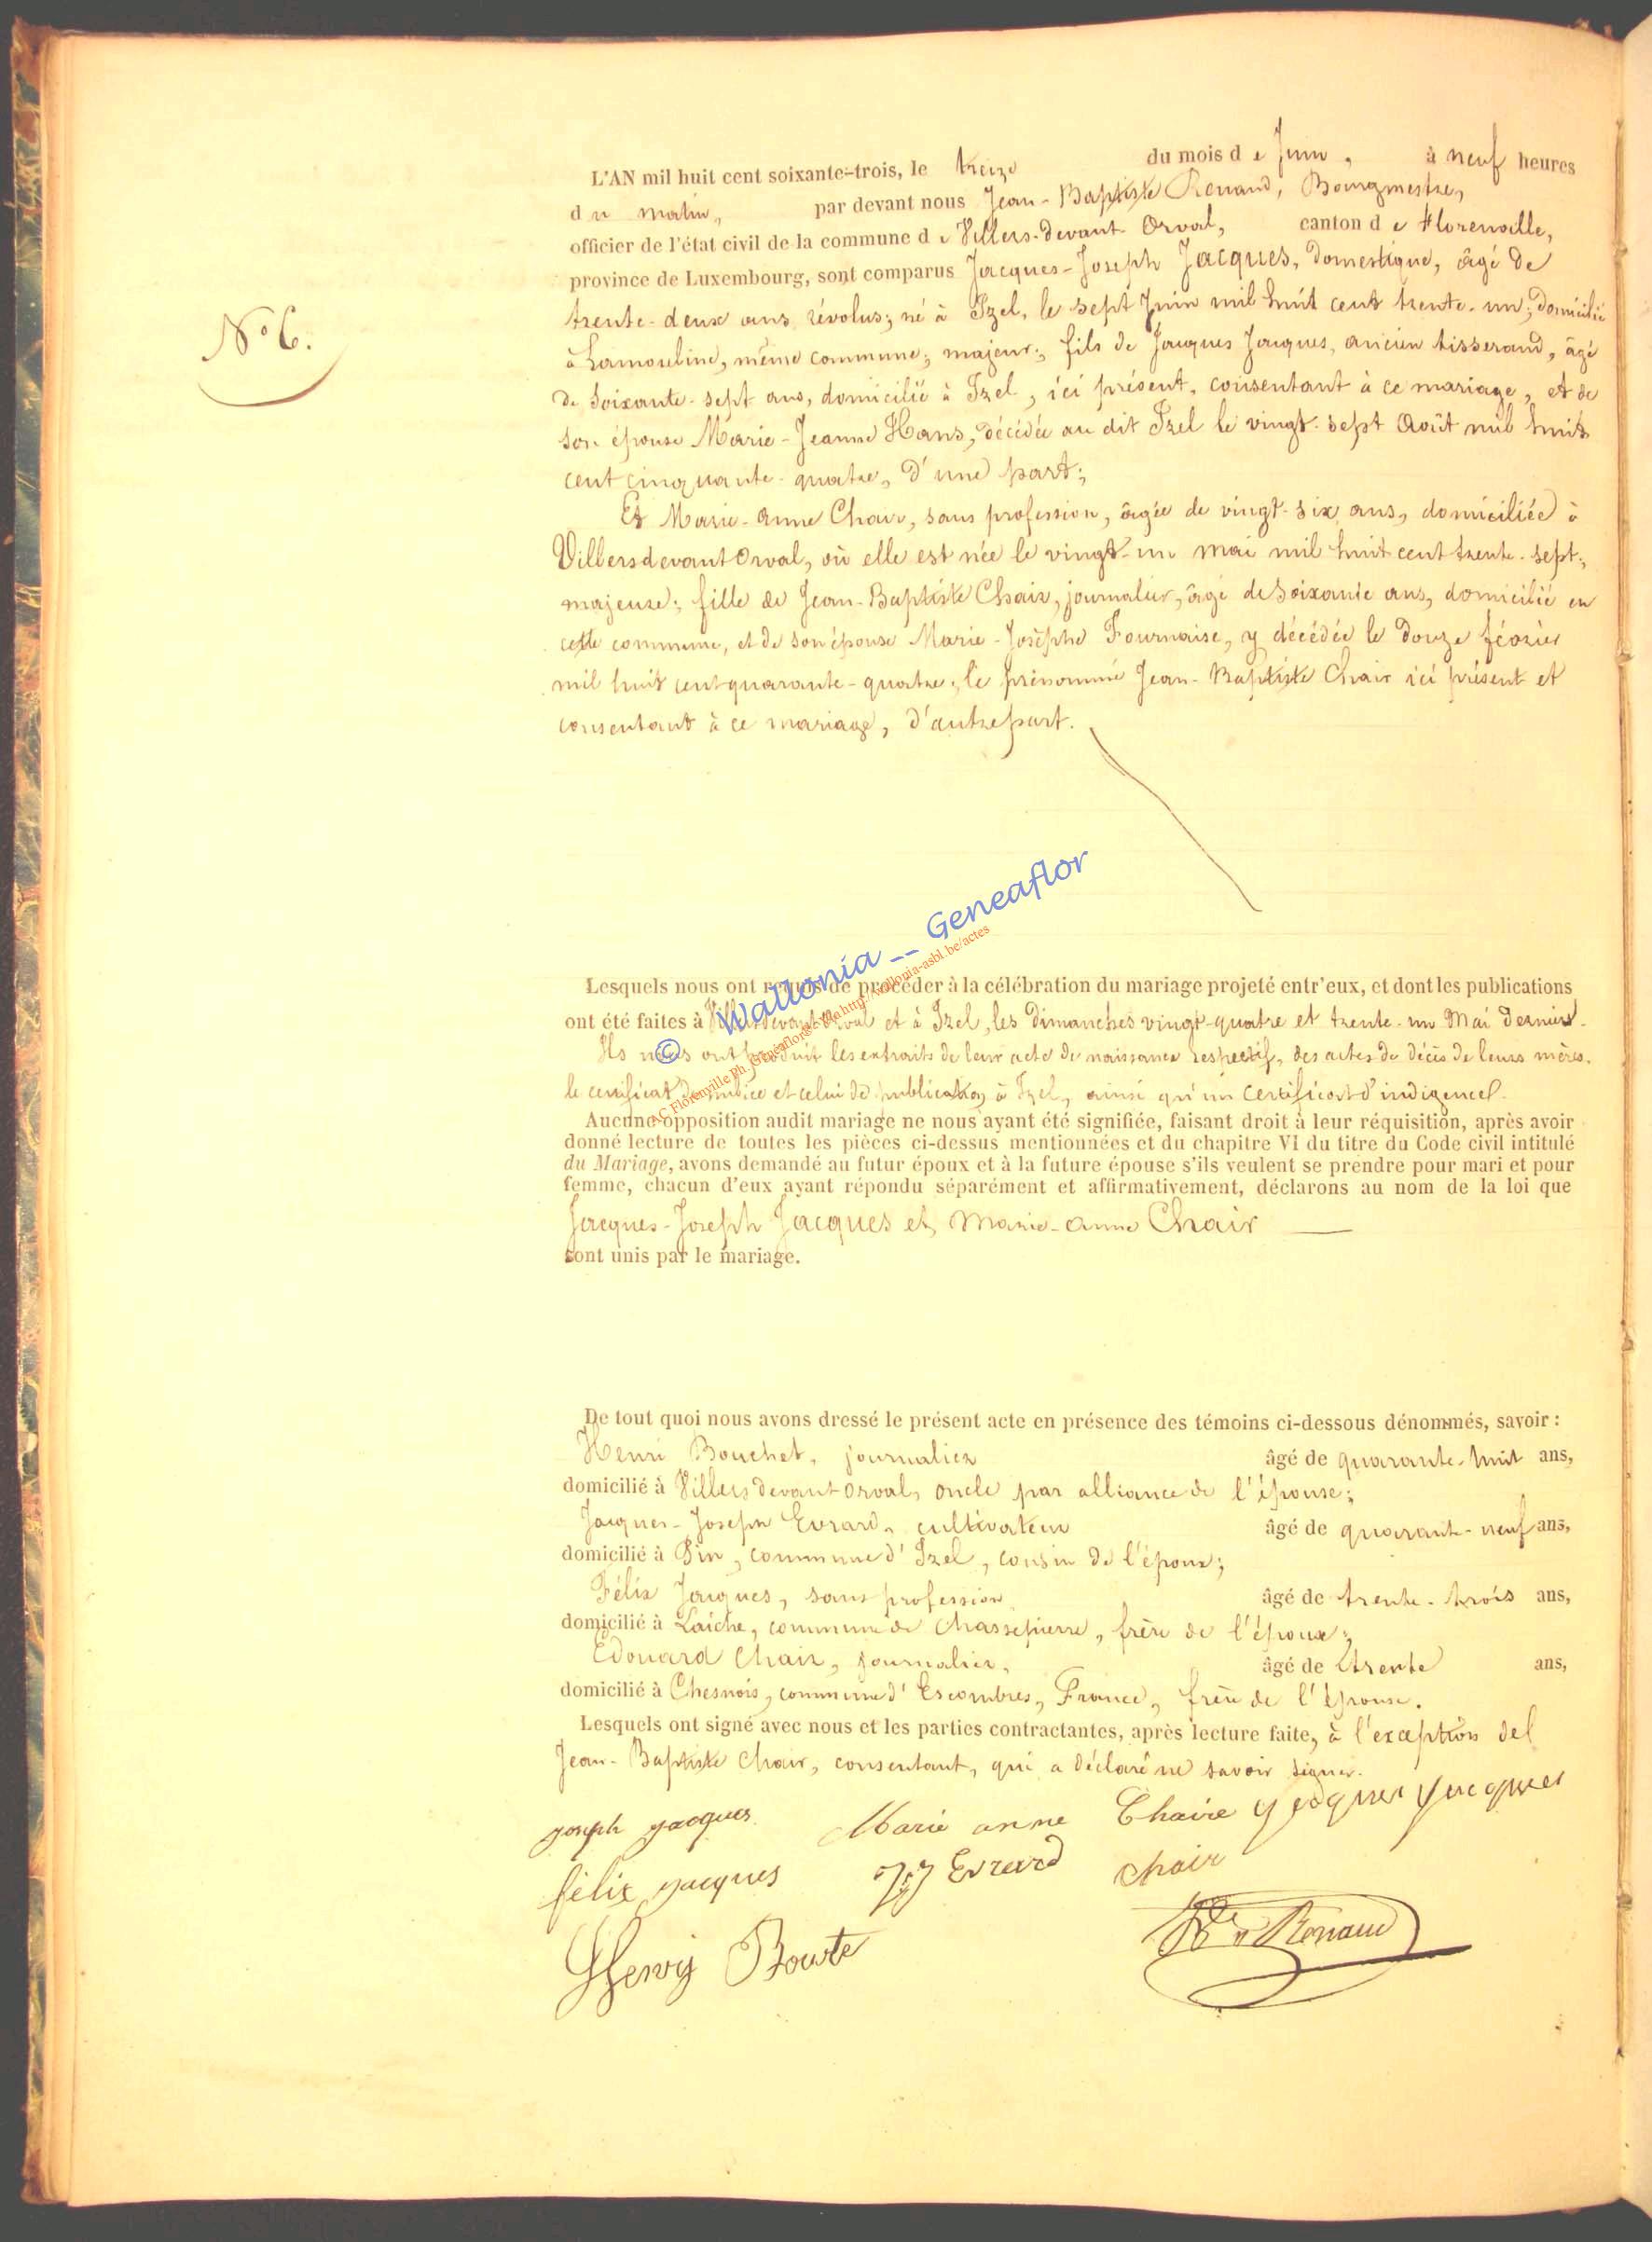 N° 6.
L'AN mil huit cent soixante-trois, le treize du mois de Juin, à neuf heures
du matin, par devant nous Jean-Baptiste Renaud, Bourgmestre,
officier de l'état civil de la commune de Villers-devant Orval, canton de Florenville,
province de Luxembourg, sont comparus Jacques-Joseph Jacques, Domestique, âgé de
trente-deux ans révolus; né à Izel, le sept Juin mil huit cent trente-un; domicilié
à Lamouline, même commune; majeur; fils de Jacques Jacques, ancien tisserand, âgé
de soixante-sept ans, domicilié à Izel, ici présent, consentant à ce mariage, et de
son épouse Marie-Jeanne Hans, décédée au dit Izel le vingt-sept Août mil huit
cent cinquante-quatre, d'une part;
Et Marie-Anne Chair, sans profession, âgée de vingt-six ans, domiciliée à
Villersdevant Orval, où elle est née le vingt-un mai mil huit cent trente-sept;
majeure; fille de Jean-Baptiste Chair, journalier, âgé de soixante ans, domicilié en
cette commune, et de son épouse Marie-Josèphe Fournaise, y décédée le douze février
mil huit cent quarante-quatre; le prénommé Jean-Baptiste Chair ici présent et
consentant à ce mariage, d'autre part.
Lesquels nous ont requis de procéder à la célébration du mariage projeté entr'eux, et dont les publications
ont été faites à Villersdevant Orval et à Izel, les Dimanches vingt-quatre et trente-un Mai dernier.
Ils nous ont produit les extraits de leur acte de naissance respectif, des actes de décès de leurs mères,
le certificat de milice et celui de publication à Izel, ainsi qu'un certificat d'indigence.
Aucune opposition audit mariage ne nous ayant été signifiée, faisant droit à leur réquisition, après avoir
donné lecture de toutes les pièces ci-dessus mentionnées et du chapitre VI du titre du Code civil intitulé
du Mariage, avons demandé au futur époux et à la future épouse s'ils veulent se prendre pour mari et pour
femme, chacun d'eux ayant répondu séparément et affirmativement, déclarons au nom de la loi que
Jacques-Joseph Jacques et Marie-Anne Chair
sont unis par le mariage.
© Wallonia -- Geneaflor
AC Florenville Ph. Geneaflor http://wallonia-asbl.be/actes
De tout quoi nous avons dressé le présent acte en présence des témoins ci-dessous dénommés, savoir :
Henri Bouchet, journalier âgé de quarante-huit ans,
domicilié à Villersdevant Orval, oncle par alliance de l'épouse;
Jacques-Joseph Evrard, cultivateur âgé de quarante-neuf ans,
domicilié à Pin, commune d'Izel, cousin de l'époux;
Félix Jacques, sans profession âgé de trente-trois ans,
domicilié à Laiche, commune de Chassepierre, frère de l'époux;
Edouard Chair, journalier, âgé de trente ans,
domicilié à Chesnois, commune d'Escombres, France, frère de l'épouse.
Lesquels ont signé avec nous et les parties contractantes, après lecture faite, à l'exception de
Jean-Baptiste Chair, consentant, qui a déclaré ne savoir signer.
joseph jacques Marie anne Chaire jacques jacques
félix jacques JJ Evrard chair
Henry Boucte Renaud